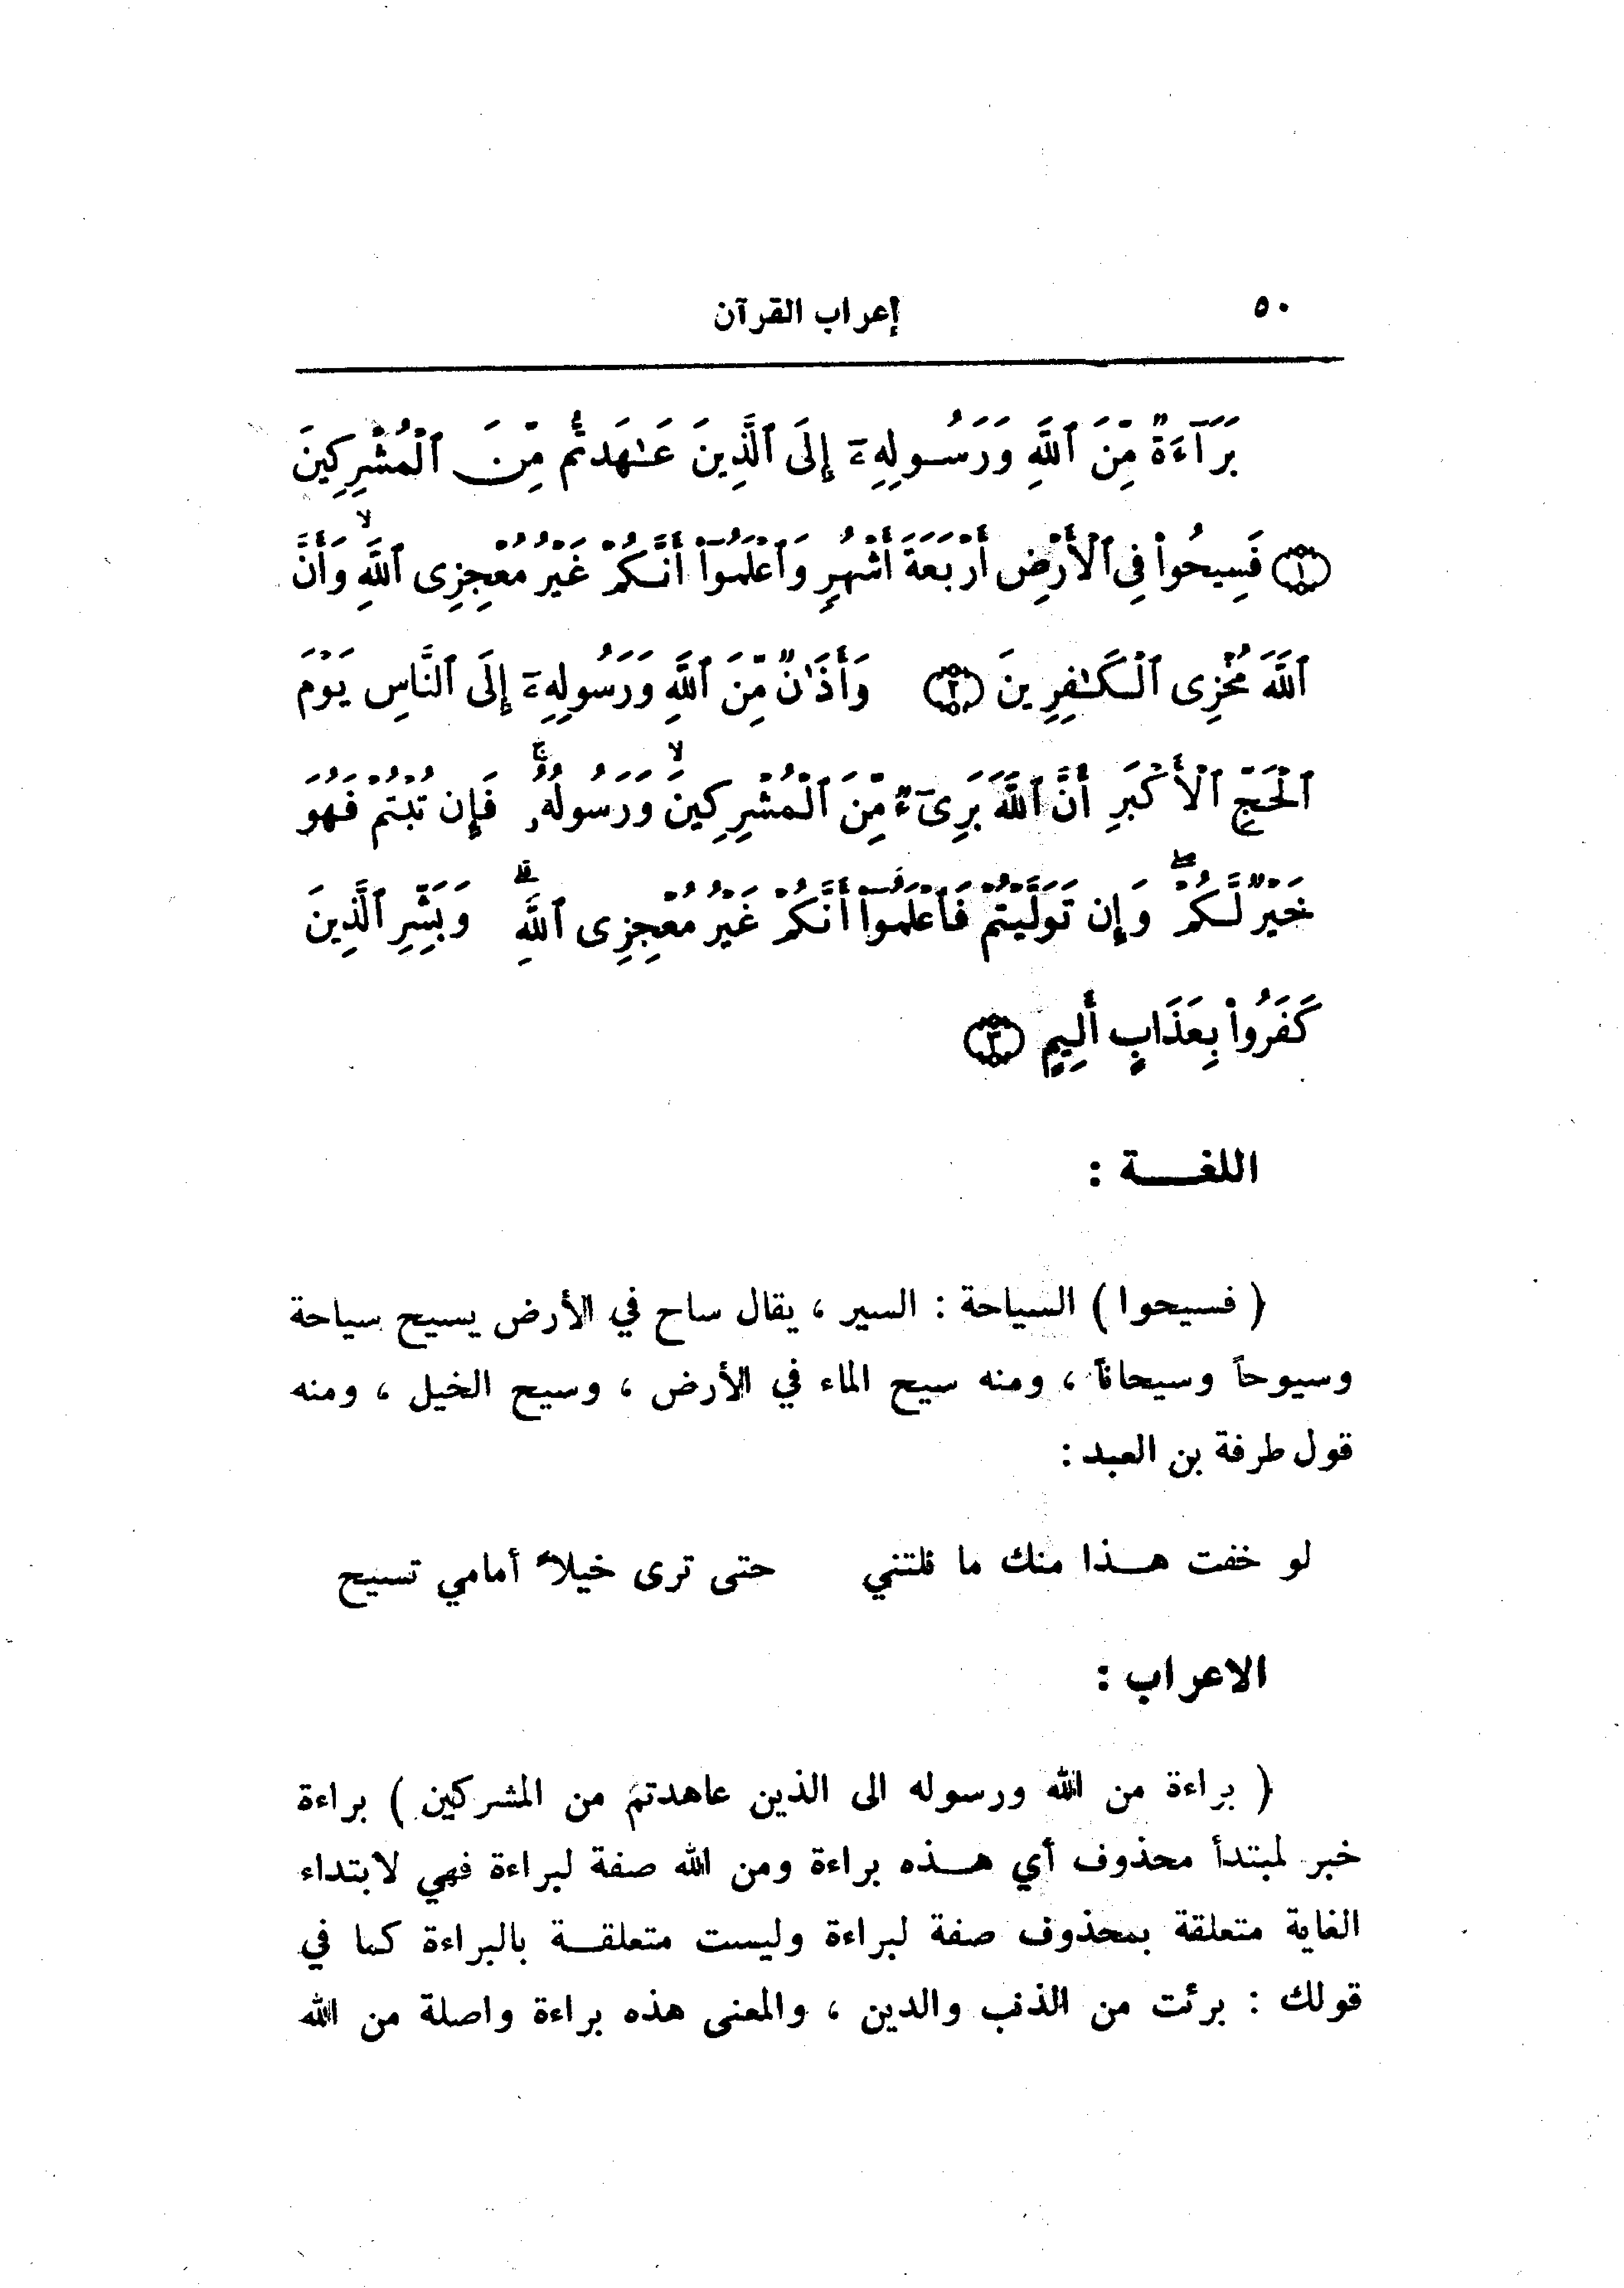 ٥٠
إعراب القرآن
بَرَآءَةٌ مِّنَ ٱللَّهِ وَرَسُولِهِۦٓ إِلَى ٱلَّذِينَ عَـٰهَدتُّم مِّنَ ٱلْمُشْرِكِينَ
(١) فَسِيحُوا۟ فِى ٱلْأَرْضِ أَرْبَعَةَ أَشْهُرٍ وَٱعْلَمُوٓا۟ أَنَّكُمْ غَيْرُ مُعْجِزِى ٱللَّهِ ۙ وَأَنَّ
ٱللَّهَ مُخْزِى ٱلْكَـٰفِرِينَ (٢) وَأَذَٰنٌ مِّنَ ٱللَّهِ وَرَسُولِهِۦٓ إِلَى ٱلنَّاسِ يَوْمَ
ٱلْحَجِّ ٱلْأَكْبَرِ أَنَّ ٱللَّهَ بَرِىٓءٌ مِّنَ ٱلْمُشْرِكِينَ ۙ وَرَسُولُهُۥ ۚ فَإِن تُبْتُمْ فَهُوَ
خَيْرٌ لَّكُمْ ۖ وَإِن تَوَلَّيْتُمْ فَٱعْلَمُوٓا۟ أَنَّكُمْ غَيْرُ مُعْجِزِى ٱللَّهِ ۗ وَبَشِّرِ ٱلَّذِينَ
كَفَرُوا۟ بِعَذَابٍ أَلِيمٍ (٣)
اللغـــــة :
( فسيحوا ) السياحة : السير ، يقال ساح في الأرض يسيح سياحة
وسيوحاً وسيحاناً ، ومنه سيح الماء في الأرض ، وسيح الخيل ، ومنه
قول طرفة بن العبد :
لو خفت هـــذا منك ما نلتني حتى ترى خيلاً أمامي تسيح
الاعراب :
( براءة من الله ورسوله الى الذين عاهدتم من المشركين ) براءة
خبر لمبتدأ محذوف أي هـــذه براءة ومن الله صفة لبراءة فهي لابتداء
الغاية متعلقة بمحذوف صفة لبراءة وليست متعلقـــة بالبراءة كما في
قولك : برئت من الذنب والدين ، والمعنى هذه براءة واصلة من الله